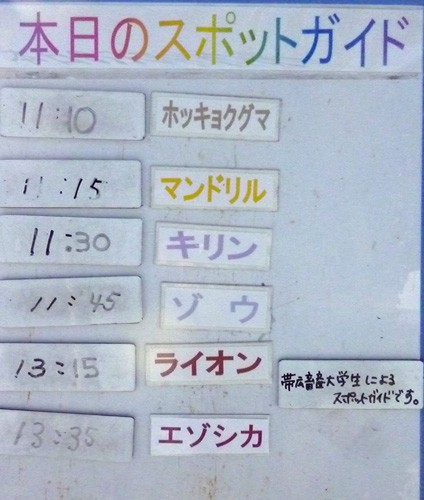 本日のスポットガイド
11:10 ホッキョクグマ
11:15 マンドリル
11:30 キリン
11:45 ゾウ
13:15 ライオン
帯広畜産大学生による
スポットガイドです。
13:35 エゾシカ